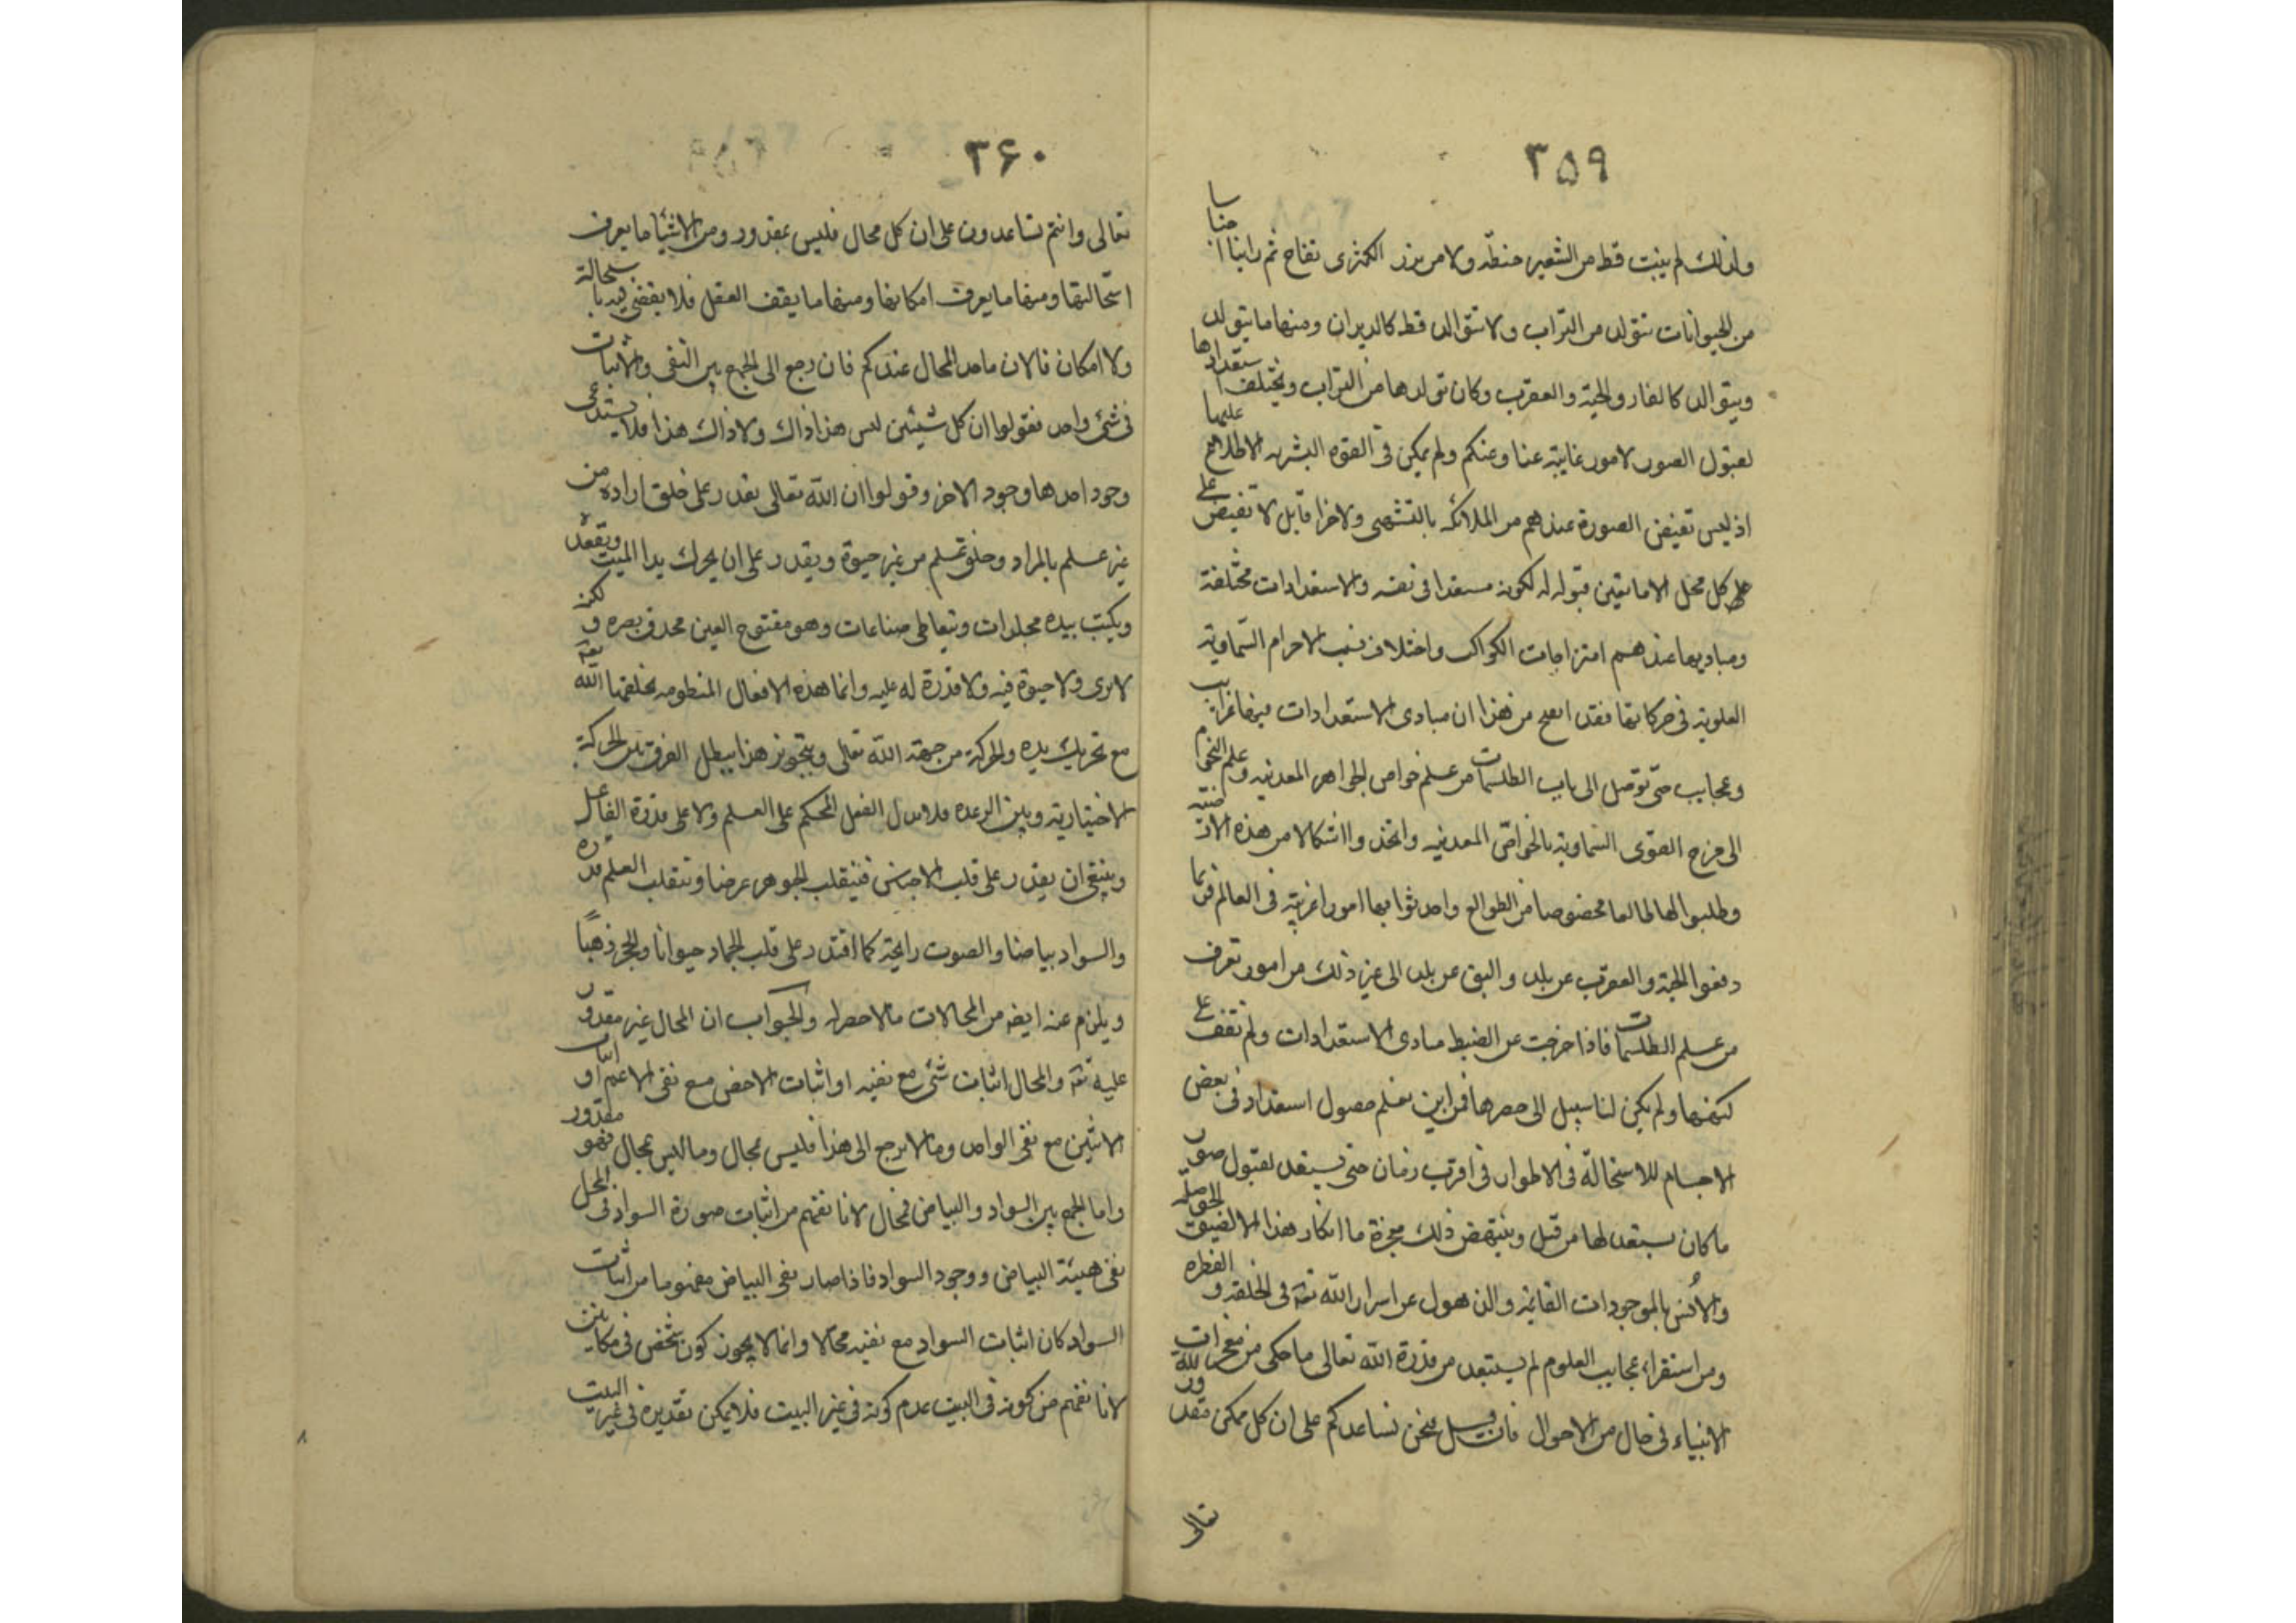 ٣٥٩
ولذلك لم ينبت قط من الشعير حنطة ولا من بزر الكمثرى تفاح ثم راينا اجناسا
من الحيوانات تتولد من التراب ولا تتوالد قط كالديدان ومنها ما يتولد
ويتوالد كالفار والحية والعقرب وكان تولدها من التراب ويختلف استعدادها
لقبول الصور لامور غايبة عنا وعنكم ولم يمكن في القوه البشريه الاطلاع عليها
اذ ليس تفيض الصورة عندهم من الملائكه بالتشهى ولا جزافا بل لا تفيض على
على كل محل الا ما تعين قبوله له لكونه مستعدا في نفسه والاستعدادات مختلفة
ومباديها عندهم امتزاجات الكواكب واختلاف نسب الاجرام السماوية
العلوية في حركاتها فقد اتضح من هذا ان مبادى الاستعدادات فيها غرايب
وعجايب حتى توصل الى باب الطلسمات من علم خواص الجواهر المعدنيه وعلم النجوم
الى مزج القوى السماوية بالخواص المعدنيه واتخذوا اشكالا من هذه الارضية
وطلبوا لها طالعا مخصوصا من الطوالع واحدثوا بها امورا غريبة في العالم فربما
دفعوا الحية والعقرب عن بلد والبق عن بلد الى غير ذلك من امور تعرف
من علم الطلسمات فاذا خرجت عن الضبط مبادى الاستعدادات ولم نقف على
كنهها ولم يكن لنا سبيل الى حصرها فمن اين نعلم حصول استعداد في بعض
الاجسام للاستحالة في الاطوار في اقرب زمان حتى يستعد لقبول صور
ما كان يستعد لها من قبل وينتهض ذلك معجزة ما انكار هذا الا لضيق الحوصلة
والانس بالموجودات الفانية والذهول عن اسرار الله تعه في الخلقه و الفطره
ومن استقراء عجايب العلوم لم يستبعد من قدرة الله تعالى ما حكى من معجزات
الانبياء في حال من الاحوال فان قيل فنحن نساعدكم على ان كل ممكن مقدور لله
تعالى
٣٦٠
تعالى وانتم تساعدون على ان كل محال فليس بمقدور ومن الاشياء ما يعرف
استحالتها ومنها ما يعرف امكانها ومنها ما يقف العقل فلا يقضى فيه باستحالة
ولا امكان فالان ما حد المحال عندكم فان رجع الى الجمع بين النفى والاثبات
في شئ واحد فقولوا ان كل شيئين ليس هذا ذاك ولا ذاك هذا فلا يستدعى
وجود احدها وجود الاخر وقولوا ان الله تعالى يقدر على خلق ارادة من
غير علم بالمراد وخلق علم من غير حيوة ويقدر على ان يحرك يد الميت ويقعده
ويكتب بيده مجلدات ويتعاطى صناعات وهو مفتوح العين محدق بصره و لكنه
لا يرى ولا حيوة فيه ولا قدرة له عليه وانما هذه الافعال المنظومه يخلقها الله تعه
مع تحريك يده والحركة من جهة الله تعالى وبتجويز هذا يبطل الفرق بين الحركة
الاختيارية وبين الرعده فلا يدل الفعل المحكم على العلم ولا على قدرة الفاعل
وينبغي ان يقدر على قلب الاجناس فينقلب الجوهر عرضا وتنقلب العلم قدرة
والسواد بياضا والصوت رايحة كما اقتدر على قلب الجماد حيوانا والحجر ذهبًا
ويلزم عنه ايضه من المحالات ما لا حصر له والجواب ان المحال غير مقدور
عليه تعه والمحال اثبات شئ مع نفيه او اثبات الاخص مع نفى الاعم او اثبات
الاثنين مع نفى الواحد وما لا يرجع الى هذا فليس بمحال وما ليس بمحال فهو مقدور
واما الجمع بين السواد والبياض فمحال لانا نفهم من اثبات صورة السواد في المحل
نفى هيئة البياض ووجود السواد فاذا صار نفى البياض مفهوما من اثبات
السواد كان اثبات السواد مع نفيه محالا وانما لا يجوز كون شخص في مكانين
لانا نفهم من كونه في البيت عدم كونه في غير البيت فلا يمكن تقديره في غير البيت